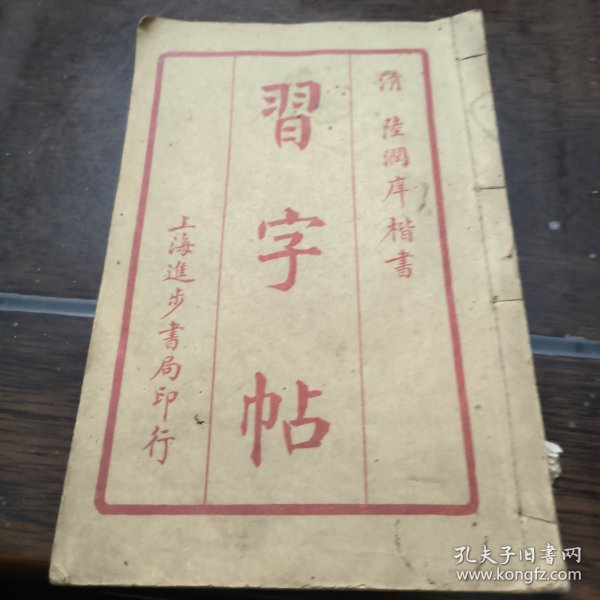 清 陸潤庠楷書
習字帖
上海進步書局印行
孔夫子旧書网
www.kongfz.com